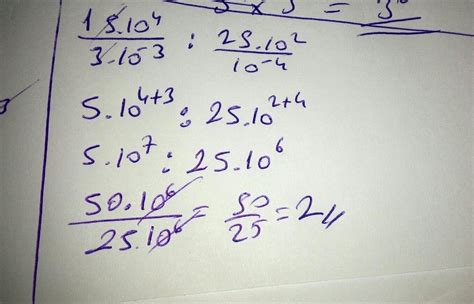 5 x 5 = 5
15.10^4 / 3.10^-3 : 25.10^2 / 10^-4
5.10^4+3 : 25.10^2+4
5.10^7 : 25.10^6
50.10^6 / 25.10^6 = 50 / 25 = 2